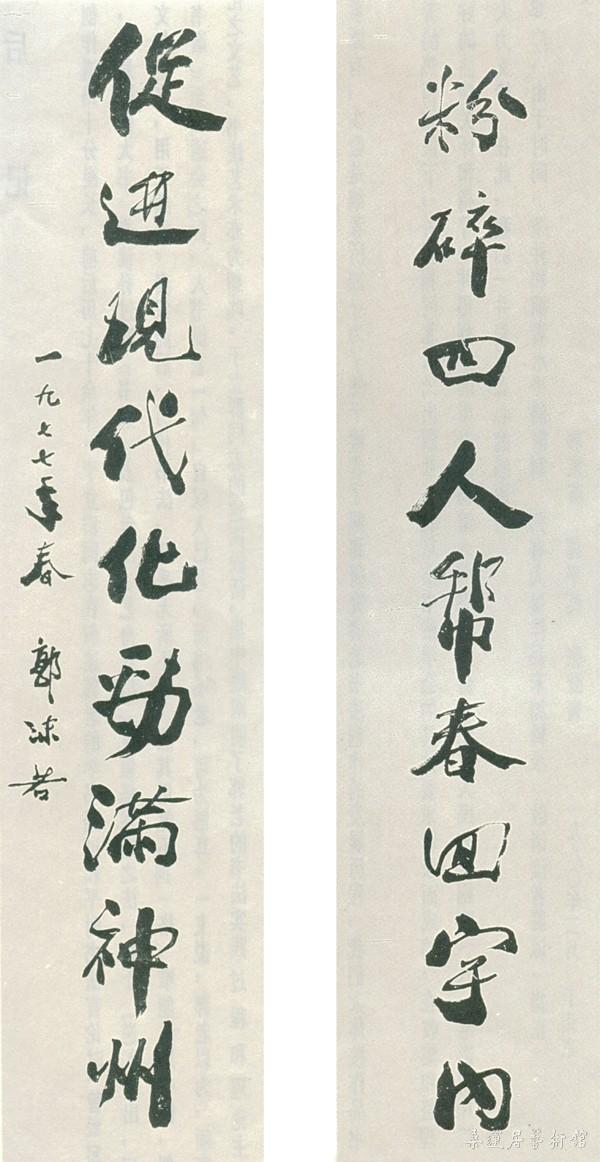 粉碎四人帮春回宇内
促进现代化劲满神州
一九七七年春 郭沫若
桑莲居艺术馆